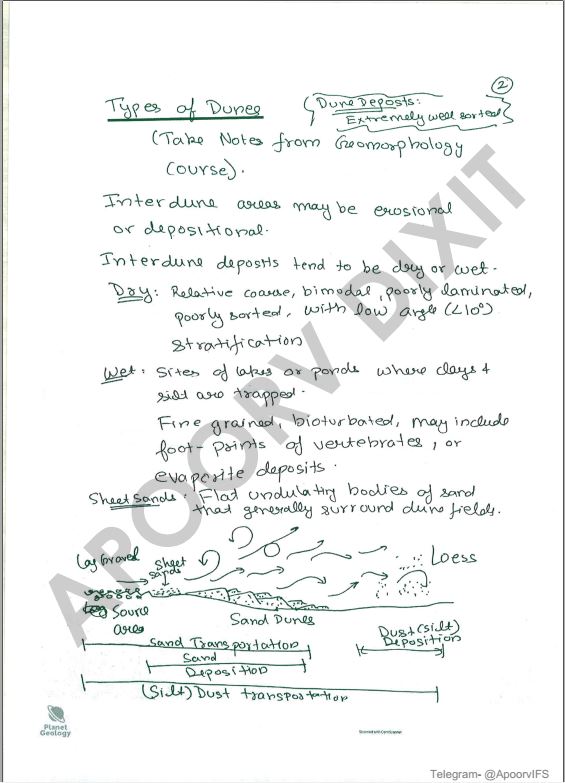 2
Types of Dunes
Dune Deposts:
Extremely well sorted
(Take Notes from Geomorphology
Course).
Interdune areas may be erosional
or depositional.
Interdune deposits tend to be dry or wet.
Dry: Relative coarse, bimodal, poorly laminated,
poorly sorted, with low angle (<10°)
stratification
Wet: Sites of lakes or ponds where clays &
silt are trapped.
Fine grained, bioturbated, may include
foot-prints of vertebrates, or
evaporite deposits.
Sheet Sands: Flat undulating bodies of sand
that generally surround dune fields.
Lag Gravel
Sheet
sands
Loess
Source
area
Sand Dunes
Sand Transportation
Dust (silt)
Deposition
Sand
Deposition
(Silt) Dust transportation
APOORV DIXIT
Planet
Geology
Scanned with CamScanner
Telegram- @ApoorvIFS